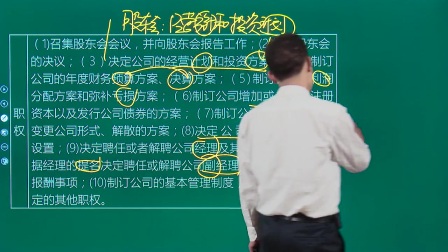 股东会：[经营方针和投资计划]
(1)召集股东会会议，并向股东会报告工作；(2) 东会
的决议；(3)决定公司的经营计划和投资方案 制订
公司的年度财务预算方案、决算方案；(5)制订 利润
分配方案和弥补亏损方案；(6)制订公司增加或 注册
资本以及发行公司债券的方案；(7)制订公
变更公司形式、解散的方案；(8)决定公
设置；(9)决定聘任或者解聘公司经理及其
据经理的提名决定聘任或解聘公司副经理
报酬事项；(10)制订公司的基本管理制度
定的其他职权。
职
权